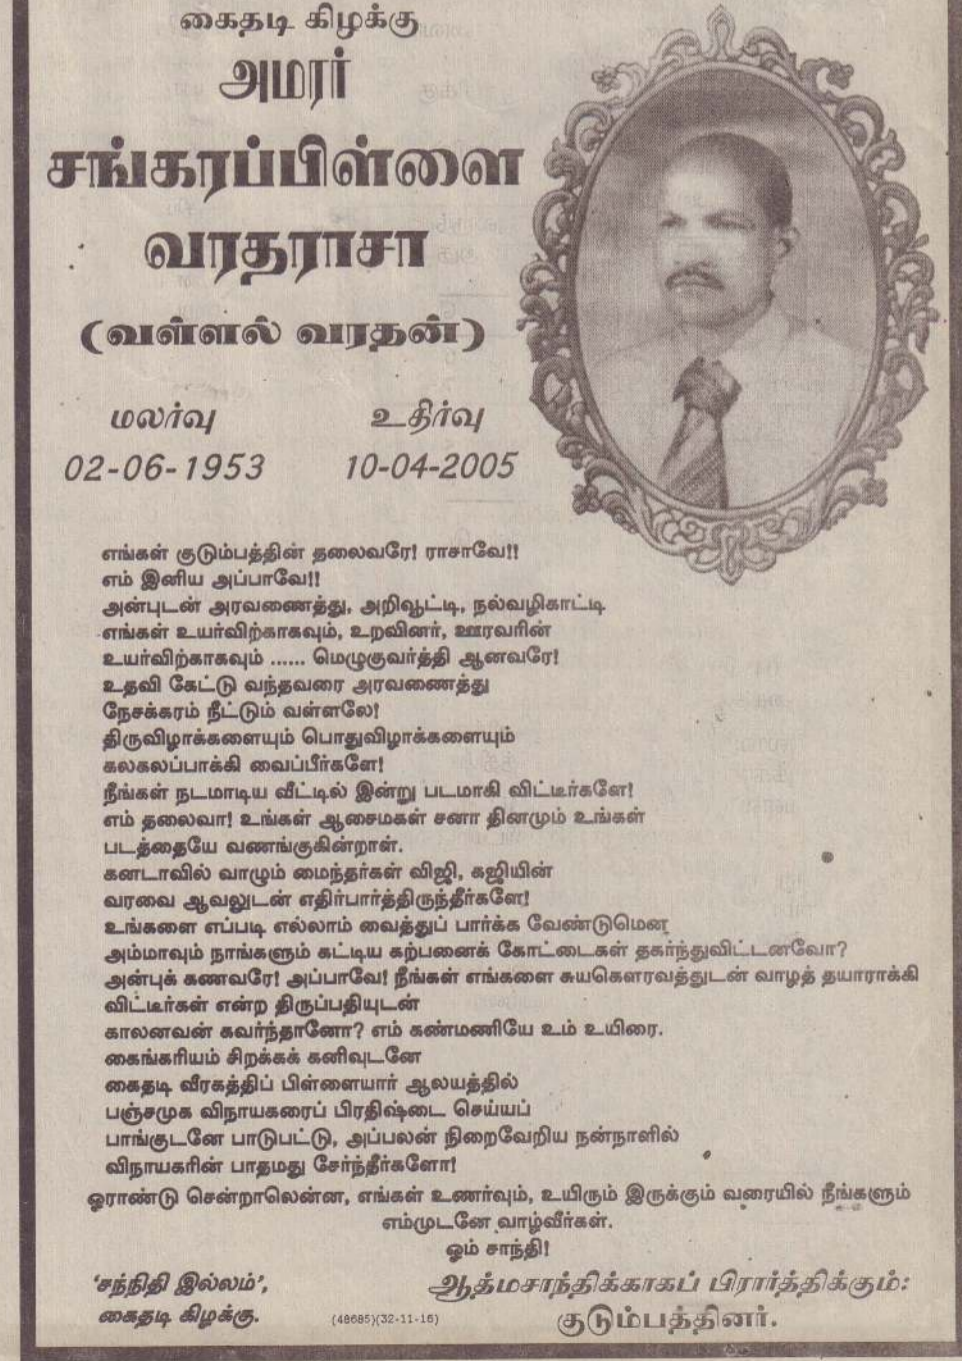 கைதடி கிழக்கு
அமரர்
சங்கரப்பிள்ளை
வரதராசா
(வள்ளல் வரதன்)
மலர்வு
02-06-1953
உதிர்வு
10-04-2005
எங்கள் குடும்பத்தின் தலைவரே! ராசாவே!!
எம் இனிய அப்பாவே!!
அன்புடன் அரவணைத்து, அறிவூட்டி, நல்வழிகாட்டி
எங்கள் உயர்விற்காகவும், உறவினர், ஊரவரின்
உயர்விற்காகவும் ...... மெழுகுவர்த்தி ஆனவரே!
உதவி கேட்டு வந்தவரை அரவணைத்து
நேசக்கரம் நீட்டும் வள்ளலே!
திருவிழாக்களையும் பொதுவிழாக்களையும்
கலகலப்பாக்கி வைப்பீர்களே!
நீங்கள் நடமாடிய வீட்டில் இன்று படமாகி விட்டீர்களே!
எம் தலைவா! உங்கள் ஆசைமகள் சனா தினமும் உங்கள்
படத்தையே வணங்குகின்றாள்.
கனடாவில் வாழும் மைந்தர்கள் விஜி, கஜியின்
வரவை ஆவலுடன் எதிர்பார்த்திருந்தீர்களே!
உங்களை எப்படி எல்லாம் வைத்துப் பார்க்க வேண்டுமென
அம்மாவும் நாங்களும் கட்டிய கற்பனைக் கோட்டைகள் தகர்ந்துவிட்டனவோ?
அன்புக் கணவரே! அப்பாவே! நீங்கள் எங்களை சுயகௌரவத்துடன் வாழத் தயாராக்கி
விட்டீர்கள் என்ற திருப்பதியுடன்
காலனவன் கவர்ந்தானோ? எம் கண்மணியே உம் உயிரை.
கைங்கரியம் சிறக்கக் கனிவுடனே
கைதடி வீரகத்திப் பிள்ளையார் ஆலயத்தில்
பஞ்சமுக விநாயகரைப் பிரதிஷ்டை செய்யப்
பாங்குடனே பாடுபட்டு, அப்பலன் நிறைவேறிய நன்நாளில்
விநாயகரின் பாதமது சேர்ந்தீர்களோ!
ஓராண்டு சென்றாலென்ன, எங்கள் உணர்வும், உயிரும் இருக்கும் வரையில் நீங்களும்
எம்முடனே வாழ்வீர்கள்.
ஓம் சாந்தி!
'சந்நிதி இல்லம்',
கைதடி கிழக்கு.
(48685)(32-11-16)
ஆத்மசாந்திக்காகப் பிரார்த்திக்கும்:
குடும்பத்தினர்.